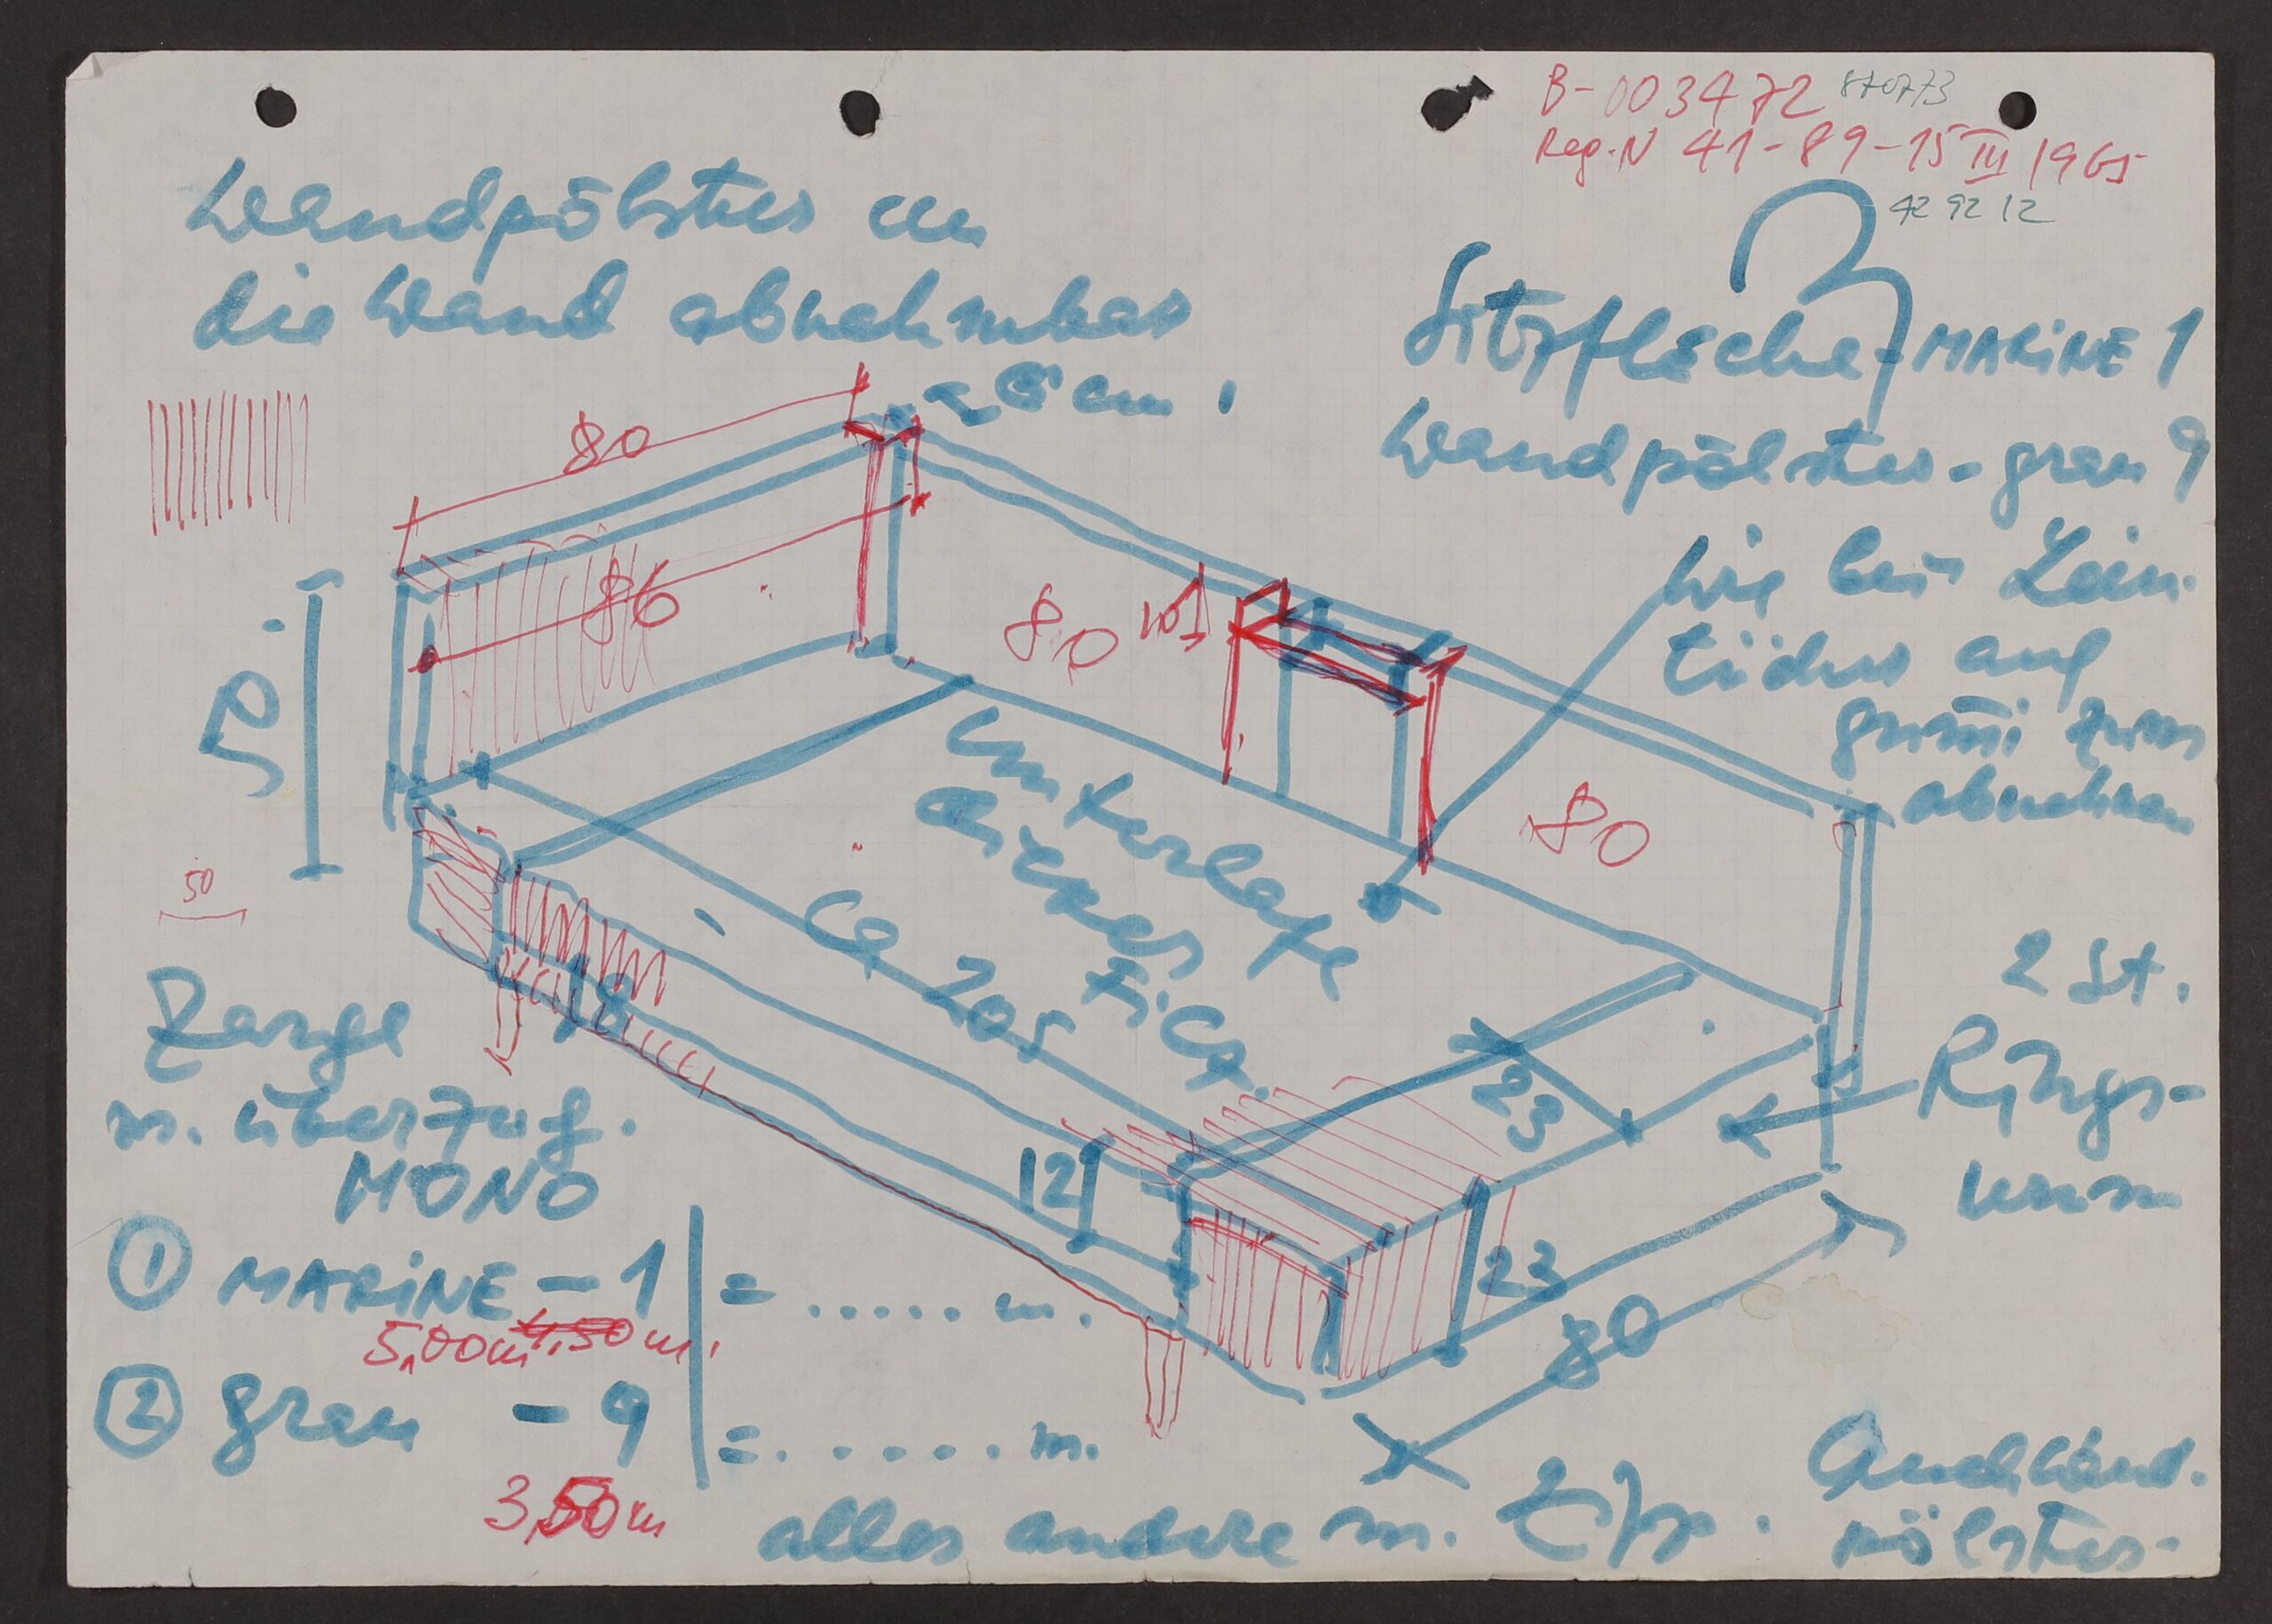 B-003472 870773
Reg. N 41-89-15 III 1965
42 92 12
Wandpölster an
die Wand abnehmbar
≈ 6 cm.
Sitzfläche-MARINE 1
Wandpölster-grau 9
Wie bei
auf
gum̄i zum
abnehmen
80
86
80
10
80
50
50
Unterlage
dickes
Filz.
ca 205
18
12
23
23
80
2 St.
Rings-
um
Zarge
m. überzug.
MONO
① MARINE - 1 = ..... m.
5,00m 4,50m.
② grau - 9 = ..... m.
3,50m
alles andere m. Zipp. Auch Wand.
pölster.